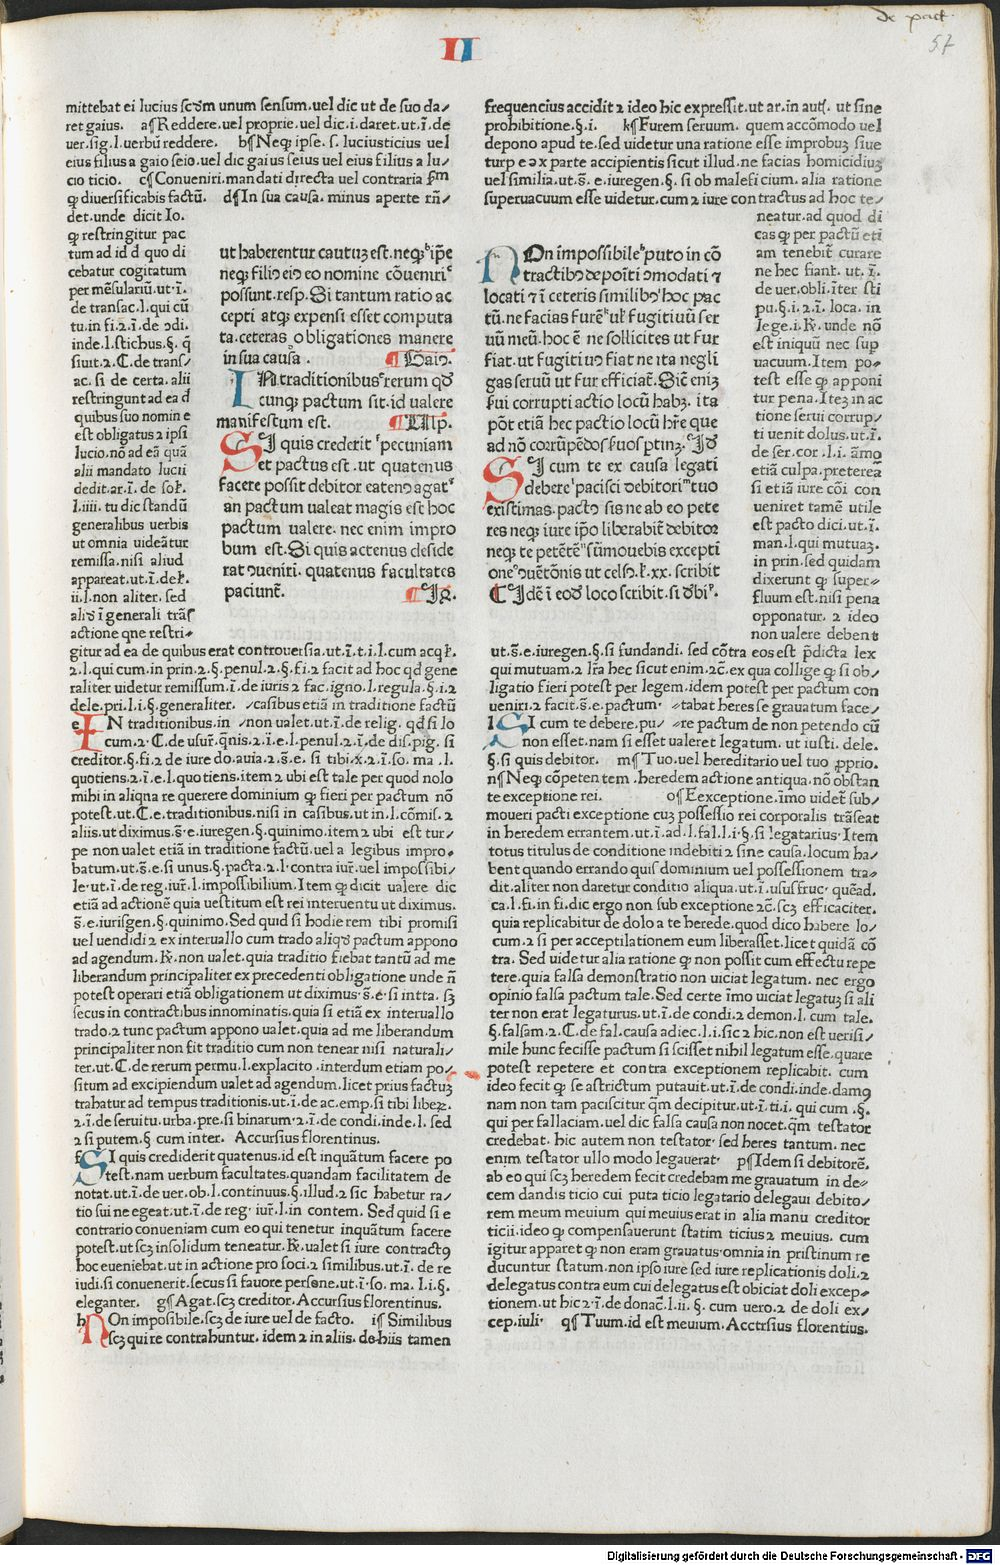 de pact.
57
II
mittebat ei lucius scđm unum sensum.uel dic ut de suo da/
ret gaius. a¶Reddere.uel proprie.uel dic.i.daret.ut.ī.de
uer.sig.l.uerbū reddere. b¶Neqꝫ ipse. s. luciusticius uel
eius filius a gaio seio.uel dic gaius seius uel eius filius a lu/
cio ticio. c¶Conueniri.mandati directa uel contraria ẜm
ꝙ diuersificabis factū. d¶In sua causa. minus aperte rn̄/
det.unde dicit Io.
ꝙ restringitur pac
tum ad id d quo di
cebatur cogitatum
per mēsulariū.ut.ī.
de transac.l.qui cū
tu.in fi.2.ī.de ↄdi.
inde.l.stichus.§. q̄
siuit.2.C.de trans/
ac. si de certa. alii
restringunt ad ea d
quibus suo nomine
est obligatus 2 ipsi
lucio.nō ad eā quā
alii mandato lucii
dedit.ar.ī. de sol̵.
l.iiii. tu dic standū
generalibus uerbis
ut omnia uideātur
remissa.nisi aliud
appareat.ut.ī.del̵.
ii.l.non aliter. sed
alid̵ ī generali trās
actione qne restri-
gitur ad ea de quibus erat controuersia.ut.ī.t.i.l.cum acq̵.
2.l.qui cum.in prin.2.§.penul.2.§.fi.2 facit ad hoc qd gene
raliter uidetur remissum.ī.de iuris 2 fac.igno.l.regula.§.i.2
dele.pri.l.i.§.generaliter. /casibus etiā in traditione factū
e IN traditionibus.in /non ualet.ut.ī.de relig. qd si lo
cum.2.C.de usur̵.qnis.2.ī.e.l.penul.2.ī.de dis.pig. si
creditor.§.fi.2 de iure do.auia.2.s̄.e. si tibi.x.2.ī.so. ma .l.
quotiens.2.ī.e.l.quotiens.item 2 ubi est tale per quod nolo
mihi in aliqua re querere dominium ꝙ fieri per pactum nō
potest.ut.C.e.traditionibus.nisi in casibus.ut in.l.cōmis. 2
aliis.ut diximus.s̄.e.iuregen.§.quinimo.item 2 ubi est tur/
pe non ualet etiā in traditione factū.uel a legibus impro-
batum.ut.s̄.e.si unus.§.pacta.2.l.contra iur̵.uel impossibi/
le.ut.ī.de reg.iur̵.l.impossibilium.Item ꝙ dicit ualere dic
etiā ad actionē quia uestitum est rei interuentu ut diximus.
s̄.e.iurisgen.§.quinimo.Sed quid si hodie rem tibi promisi
uel uendidi 2 ex interuallo cum trado aliqd̵ pactum appono
ad agendum.R̵.non ualet.quia traditio fiebat tantū ad me
liberandum principaliter ex precedenti obligatione unde n̄
potest operari etiā obligationem ut diximus.s̄.e.si intra. sꝫ
secus in contractibus innominatis.quia si etiā ex interuallo
trado.2 tunc pactum appono ualet.quia ad me liberandum
principaliter non fit traditio cum non tenear nisi naturali/
ter.ut.C.de rerum permu.l.explacito .interdum etiam po/
situm ad excipiendum ualet ad agendum.licet prius factuꝫ
trahatur ad tempus traditionis.ut.ī.de ac.emp.si tibi libeꝝ.
2.ī.de seruitu.urba.pre.si binarum.2.ī.de condi.inde.l. sed
2 si putem.§ cum inter. Accursius florentinus.
f SI quis crediderit quatenus.id est inquātum facere po
test.nam uerbum facultates.quandam facilitatem de
notat.ut.ī.de uer.ob.l.continuus.§.illud.2 sic habetur ra/
tio sui ne egeat.ut.ī.de reg. iur̵.l.in contem. Sed quid si e
contrario conueniam cum eo qui tenetur inquātum facere
potest.ut scꝫ insolidum teneatur.R̵.ualet si iure contractꝰ
hoc eueniebat.ut in actione pro soci.2 similibus.ut.ī. de re
iudi.si conuenerit.secus si fauore persone.ut.ī.so. ma.l.i.§.
eleganter. g¶Agat.scꝫ creditor.Accursius florentinus.
h NOn impossibile.scꝫ de iure uel de facto. i¶Similibus
scꝫ qui re contrahuntur.idem 2 in aliis.de hiis tamen
ut haberentur cautuꝫ est.neqꝫ b ip̄e
neqꝫ filiꝰ eiꝰ eo nomine cōueniri c
possunt.resp.Si tantum ratio ac
cepti atqꝫ expensi esset computa
ta.ceteras obligationes manere
in sua causa d ¶Gaiꝰ.
IN traditionibus e rerum qd̵
cunqꝫ pactum sit.id ualere
manifestum est. ¶Ulp.
SI quis crediderit f pecuniam
et pactus est.ut quatenus
facere possit debitor eatenꝰ agat g
an pactum ualeat magis est hoc
pactum ualere.nec enim impro
bum est.Si quis actenus deside
rat ↄueniri.quatenus facultates
paciunt̄. ¶Ig.
NOn impossibile h puto in cō
tractibꝰ depoīti ↄmodati ⁊
locati ⁊ ī ceteris similibꝰ i hoc pac
tū.ne facias furē k ul̵ fugitiuū ser
uū meū.hoc ē ne sollicites ut fur
fiat.ut fugitiuꝰ fiat ne ita negli
gas seruū ut fur efficiat̄.Sic̄ eniꝫ
ẜui corrupti actio locū habꝫ.ita
pōt etiā hec pactio locū h̄re que
ad nō corrūpēdos ẜuos ptinꝫ. Id̵
SI cum te ex causa legati
debere l pacisci debitori m tuo
existimas.pactꝰ sis ne ab eo pete
res neqꝫ iure ip̄o liberabit̄ debitor
neqꝫ te petētē n sūmouebis excepti
one o ↄuētōnis ut celsꝰ.l̵.xx. scribit
¶ Idē ī eod̵ loco scribit.si d̵bi p.
frequencius accidit 2 ideo hic expressit.ut ar.in aut̵. ut sine
prohibitione.§.i. k¶Furem seruum. quem accōmodo uel
depono apud te.sed uidetur una ratione esse improbuꝫ siue
turpe ex parte accipientis sicut illud.ne facias homicidiuꝫ
uel similia.ut.s̄. e.iuregen.§. si ob maleficium. alia ratione
superuacuum esse uidetur.cum 2 iure contractus ad hoc te/
neatur.ad quod di
cas ꝙ per pactū eti
am tenebit̄ curare
ne hec fiant. ut. ī.
de uer.obli.īter sti
pu.§.i.2.ī. loca. in
lege.i.R̵. unde nō
est iniquū nec sup
uacuum.Item po-
test esse ꝙ apponi
tur pena.Iteꝫ in ac
tione serui corrup/
ti uenit dolus.ut.ī.
de ser.cor .l.i. āmo
etiā culpa.pretereā
si etiā iure cōi con
ueniret tamē utile
est pacto dici.ut.ī.
man.l.qui mutuaꝫ.
in prin.sed quidam
dixerunt ꝙ super-
fluum est.nisi pena
opponatur. 2 ideo
non ualere debent
ut.s̄.e.iuregen.§.si fundandi. sed cōtra eos est p̄dicta lex
qui mutuam.2 lr̄a hec sicut enim.2c̄.ex qua collige ꝙ si ob/
ligatio fieri potest per legem.idem potest per pactum con
ueniri.2 facit.s̄.e.pactum. /tabat heres se grauatum face/
l SI cum te debere.pu/ /re pactum de non petendo cū
non esset.nam si esset ualeret legatum. ut iusti. dele.
§.si quis debitor. m¶Tuo.uel hereditario uel tuo ꝓprio.
n¶Neqꝫ cōpetentem .heredem actione antiqua.nō obstan
te exceptione rei. o¶Exceptione.īmo uidet̄ sub/
moueri pacti exceptione cuꝫ possessio rei corporalis trāseat
in heredem errantem.ut.ī.ad.l.fal.l.i.§.si legatarius.Item
totus titulus de conditione indebiti 2 sine causa.locum ha/
bent quando errando quis dominium uel possessionem tra/
dit.aliter non daretur conditio aliqua.ut.ī.ususfruc.quēad.
ca.l.fi.in fi.dic ergo non sub exceptione 2c̄.scꝫ efficaciter.
quia replicabitur de dolo a te herede.quod dico habere lo/
cum.2 si per acceptilationem eum liberasset.licet quidā cō
tra. Sed uidetur alia ratione ꝙ non possit cum effectu repe
tere.quia falsa demonstratio non uiciat legatum. nec ergo
opinio falsa pactum tale.Sed certe īmo uiciat legatuꝫ si ali
ter non erat legaturus.ut.ī.de condi.2 demon.l. cum tale.
§.falsam.2.C.de fal.causa adiec.l.i.sic 2 hic.non est uerisi/
mile hunc fecisse pactum si scisset nihil legatum esse.quare
potest repetere et contra exceptionem replicabit. cum
ideo fecit ꝙ se astrictum putauit.ut.ī.de condi.inde.damꝰ
nam non tam paciscitur q̄m decipitur.ut.ī.ti.i. qui cum .§.
qui per fallaciam.uel dic falsa causa non nocet.q̄m testator
credebat. hic autem non testator sed heres tantum. nec
enim testator ullo modo legauerat. p¶Idem si debitorē.
ab eo qui scꝫ heredem fecit credebam me grauatum in de-
cem dandis ticio cui puta ticio legatario delegaui debito/
rem meum meuium qui meuius erat in alia manu creditor
ticii.ideo ꝙ compensauerunt statim ticius 2 meuius. cum
igitur apparet ꝙ non eram grauatus.omnia in pristinum re
ducuntur statum.non ipso iure sed iure replicationis doli.2
delegatus contra eum cui delegatus est obiciat doli excep-
tionem.ut hic 2.ī.de donac̄.l.ii. §. cum uero.2 de doli ex/
cep.iuli. q¶Tuum.id est meuium.Acctrsius florentius.
Digitalisierung gefördert durch die Deutsche Forschungsgemeinschaft - DFG